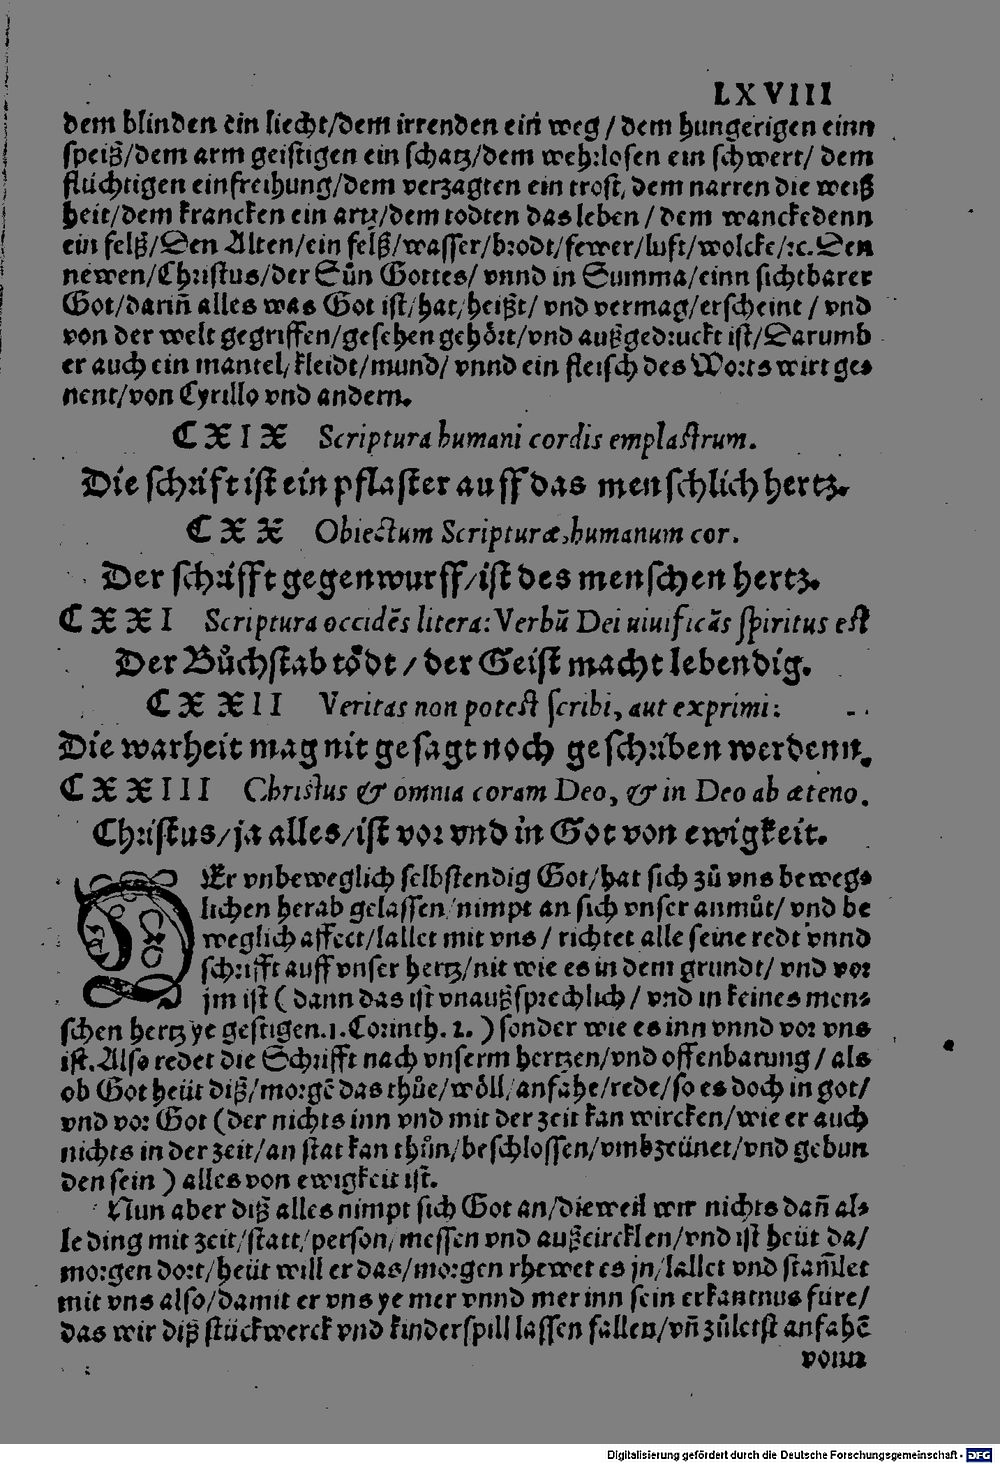 LXVIII
dem blinden ein liecht/dem irrenden ein weg / dem hungerigen einn
speiß/dem arm geistigen ein schatz/dem wehrlosen ein schwert/ dem
flüchtigen einfreihung/dem verzagten ein trost, dem narren die weiß
heit/dem krancken ein artz/dem todten das leben / dem wanckedenn
ein felß/Den Alten/ein felß/wasser/brodt/fewer/luft/wolcke/ꝛc. Den
newen/Christus/der Sůn Gottes/ vnnd in Summa/einn sichtbarer
Got/darin̄ alles was Got ist/hat/heißt/ vnd vermag/erscheint / vnd
von der welt gegriffen/gesehen gehört/vnd außgedruckt ist/Darumb
er auch ein mantel/kleidt/mund/ vnnd ein fleisch des Worts wirt ge-
nent/von Cyrillo vnd andern.
CXIX Scriptura humani cordis emplastrum.
Die schrift ist ein pflaster auff das menschlich hertz.
CXX Obiectum Scripturæ, humanum cor.
Der schrifft gegenwurff/ist des menschen hertz.
CXXI Scriptura occidēs litera: Verbū Dei uiuificās spiritus est
Der Bůchstab tödt / der Geist macht lebendig.
CXXII Veritas non potest scribi, aut exprimi:
Die warheit mag nit gesagt noch geschriben werdenn.
CXXIII Christus & omnia coram Deo, & in Deo ab æteno.
Christus/ja alles/ist vor vnd in Got von ewigkeit.
DEr vnbeweglich selbstendig Got/hat sich zů vns beweg-
lichen herab gelassen/nimpt an sich vnser anmůt/ vnd be
weglich affect/lallet mit vns / richtet alle seine redt vnnd
schrifft auff vnser hertz/nit wie es in dem grundt/ vnd vor
jm ist ( dann das ist vnaußsprechlich / vnd in keines men-
schen hertz ye gestigen.1.Corinth. 2. ) sonder wie es inn vnnd vor vns
ist. Also redet die Schrifft nach vnserm hertzen/vnd offenbarung / als
ob Got heüt diß/morgē das thůe/wöll/anfahe/rede/so es doch in got/
vnd vor Got (der nichts inn vnd mit der zeit kan wircken/wie er auch
nichts in der zeit/an stat kan thůn/beschlossen/vmbzeünet/vnd gebun
den sein ) alles von ewigkeit ist.
Nun aber diß alles nimpt sich Got an/dieweil wir nichts dan̄ al-
le ding mit zeit/statt/person/messen vnd außcircklen/vnd ist heüt da/
morgen dort/heüt will er das/morgen rhewet es jn/lallet vnd stam̄let
mit vns also/damit er vns ye mer vnnd mer inn sein erkantnus füre/
das wir diß stückwerck vnd kinderspill lassen fallen/vn̄ zůletst anfahē
vonn
Digitalisierung gefördert durch die Deutsche Forschungsgemeinschaft - DFG